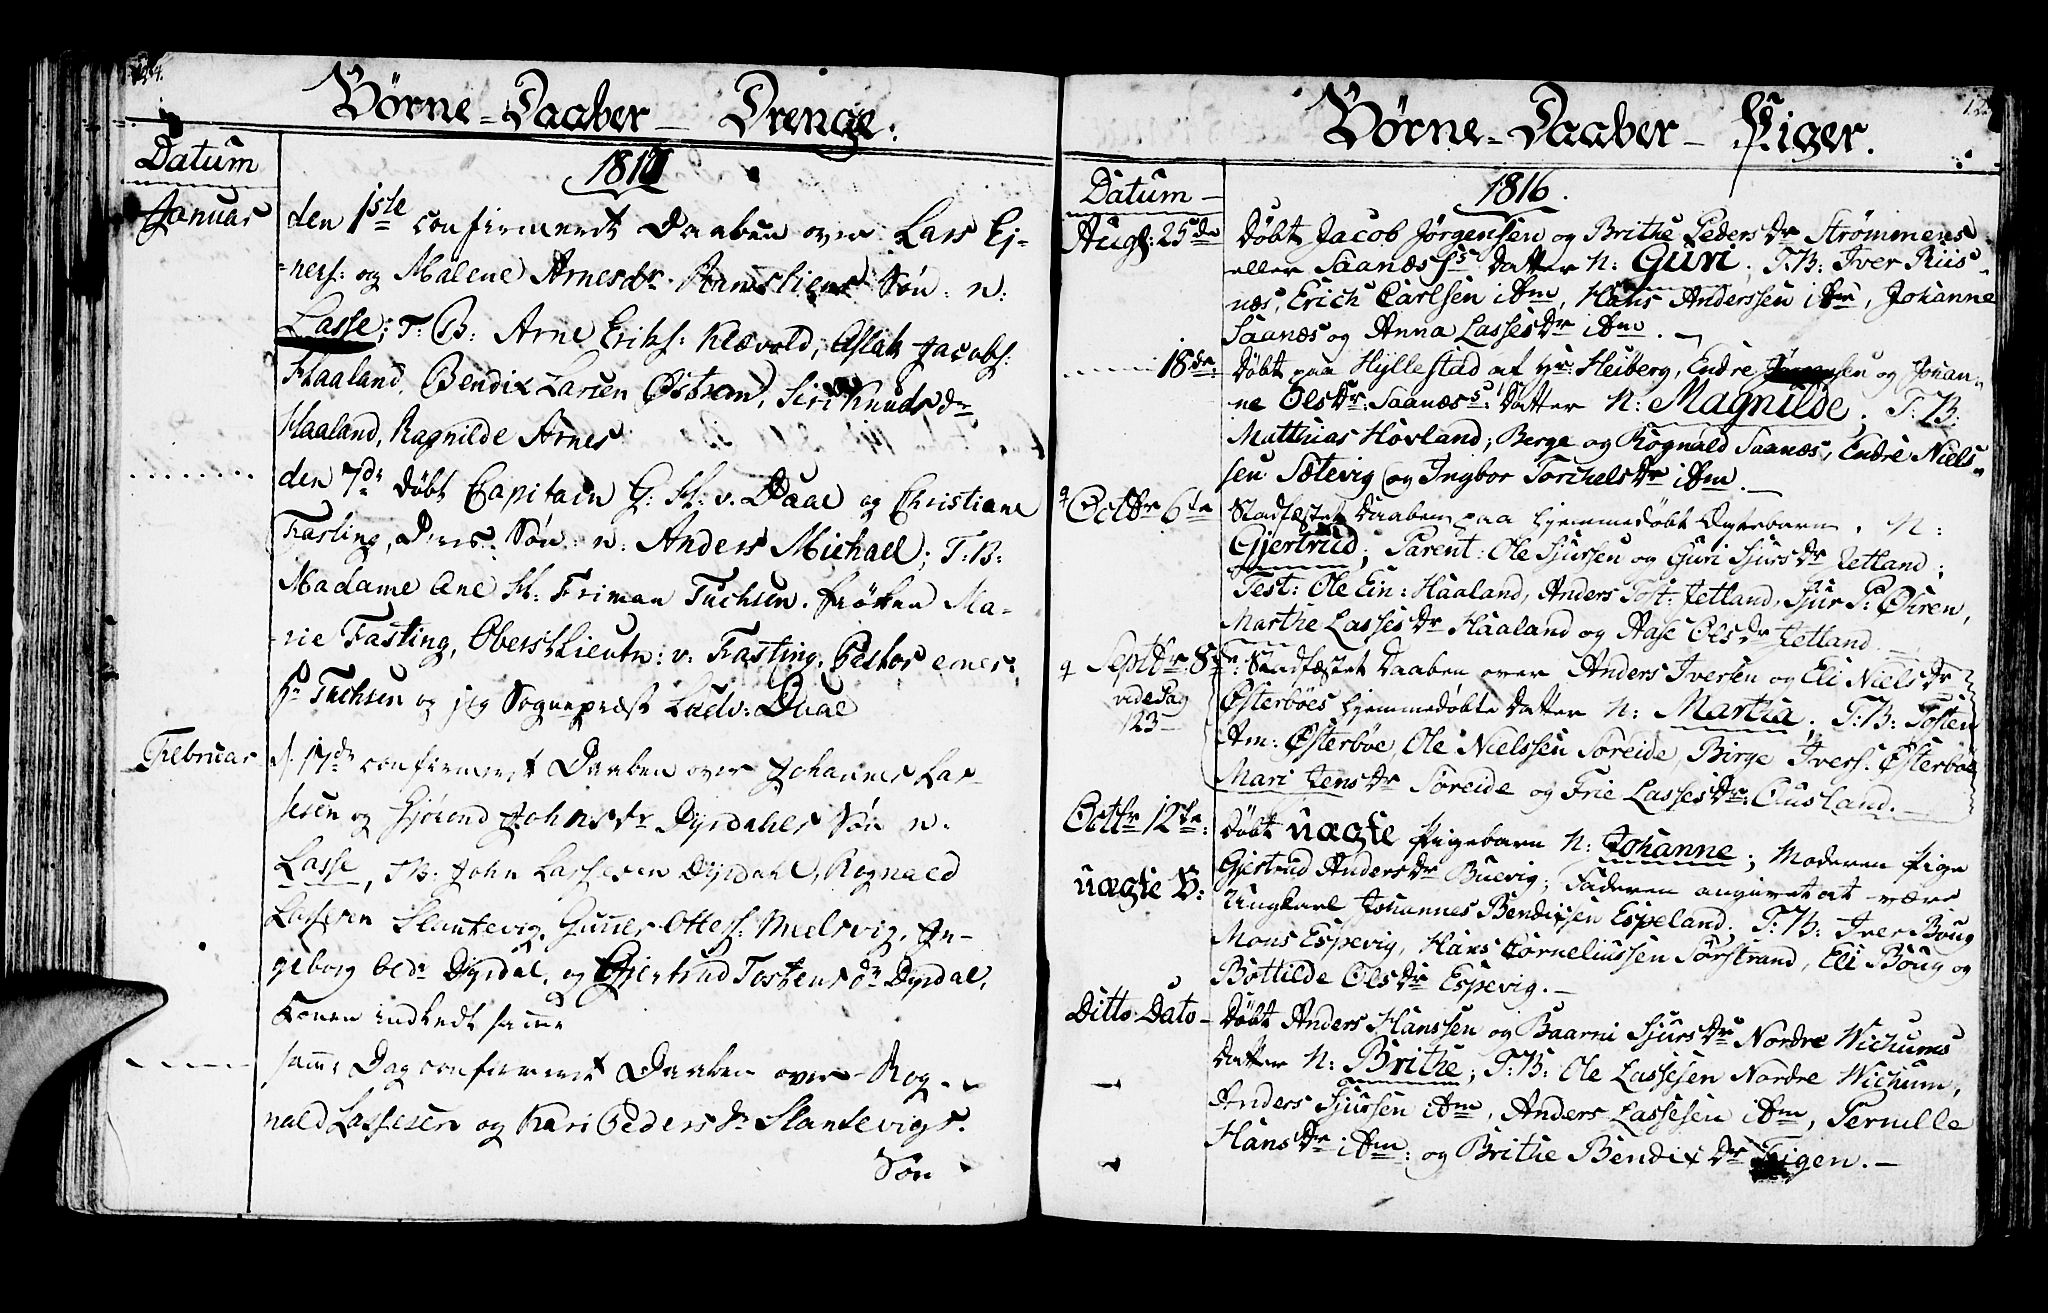 124.
Börne-Daaber - Drenge:
Datum
1817
Januar
den 1ste confirmeret Daaben over Lars Ej-
-ners: og Malene Arnesdr. Søn: n:
Lasse; T: B: Arne Eriks: Klævold, Aslak Jacobs:
Haaland, Bendix Larsen Østrem, Siri Knudsdr
Haaland, Ragnilde Arnes
den 7de døbt Capitain G: H: v. Daae og Christiane
Fasting, Deres Søn: n: Anders Michael; T: B:
Madame Ane H: Friman Tuchsen. frøken Ma-
-rie Fasting, Oberst Lieutn: v: Fasting, Pastor emer:
Hr Tuchsen og jeg Sognepræst Ludv: Daae
Februar
d. 17de confirmeret Daaben over Johannes Las-
sesen og Gjørond Johnsdr Dyrdahls Søn n.
Lasse, T:B: John Lassesen Dyrdahl, Rognald
Lassesen Slantevig, Gunner Ottes: Mielsvig, In-
geborg Olsdr Dyrdal, og Gjertrud Tostensdr Dyrdal,
Konen indledt samme
samme Dag confirmeret Daaben over Rog-
nald Lassesen og Kari Pedersdr Slantevigs
Søn
Börne-Daaber - Piger.
Datum -
1816.
Augs: 25de
Døbt Jacob Jørgensen og Brithe PedersDr Strømmens
eller Saanæs Ss Datter N: Guri; T:B: Iver Riis-
næs, Erich Carlsen ibm, Hans Anderssen ibm, Johanne
Saanæs og Anna LassesDr ibm. -
18de:
Døbt paa Hyllestad af Hr: Heiberg, Endre og Johan-
ne OlsDr: Saanæs: Datter N: Magnilde; T:B:
Matthias Hovland; Berge og Rognald Saanæs, Endre Niels-
sen Sætevig og Ingbor TorchelsDr ibm. -
Octbr 6te
Stadfæstet Daaben paa hjemmedøbt Pigebarn. N:
Gjertrud; Parent: Ole Sjursen og Guri SjursDr Zetland;
Test: Ole Ein: Haaland, Anders Tost: Zetland, Sjur P: Øren,
Marthe LassesDr Haaland og Aase OlsDr Zetland. -
Septbr. 8de
vide Pag
123 -
Stadfæstet Daaben over Anders Iversen og Eli NielsDr
Østerböes hjemmedøbte Datter N: Martha; T:B: Tosten
Am: Østerböe, Ole Nielssen Søreide, Birge Ivers. Østerböe
Mari JensDr Søreide og Frie LassesDr: Ousland. -
Octbr 12te:
uægte B:
Døbt uægte Pigebarn N: Johanne; Moderen Pige
Gjertrud AndersDr Buevig; Faderen angivet at være
Ungkarl Johannes Bendixsen Espeland; T:B: Iver Böug
Mons Espevig, Hans Corneliussen Sørstrand, Eli Böug og
Bottilde OlsDr Espevig. -
Ditto Dato -
Døbt Anders Hanssen og Baarni SjursDr Nordre Wichums
Datter N: Brithe; T:B: Ole Lassesen Nordre Wichum,
Anders Sjursen ibm, Anders Lassesen ibm, Pernille
HansDr ibm: og Brithe BendixDr Teigen. -